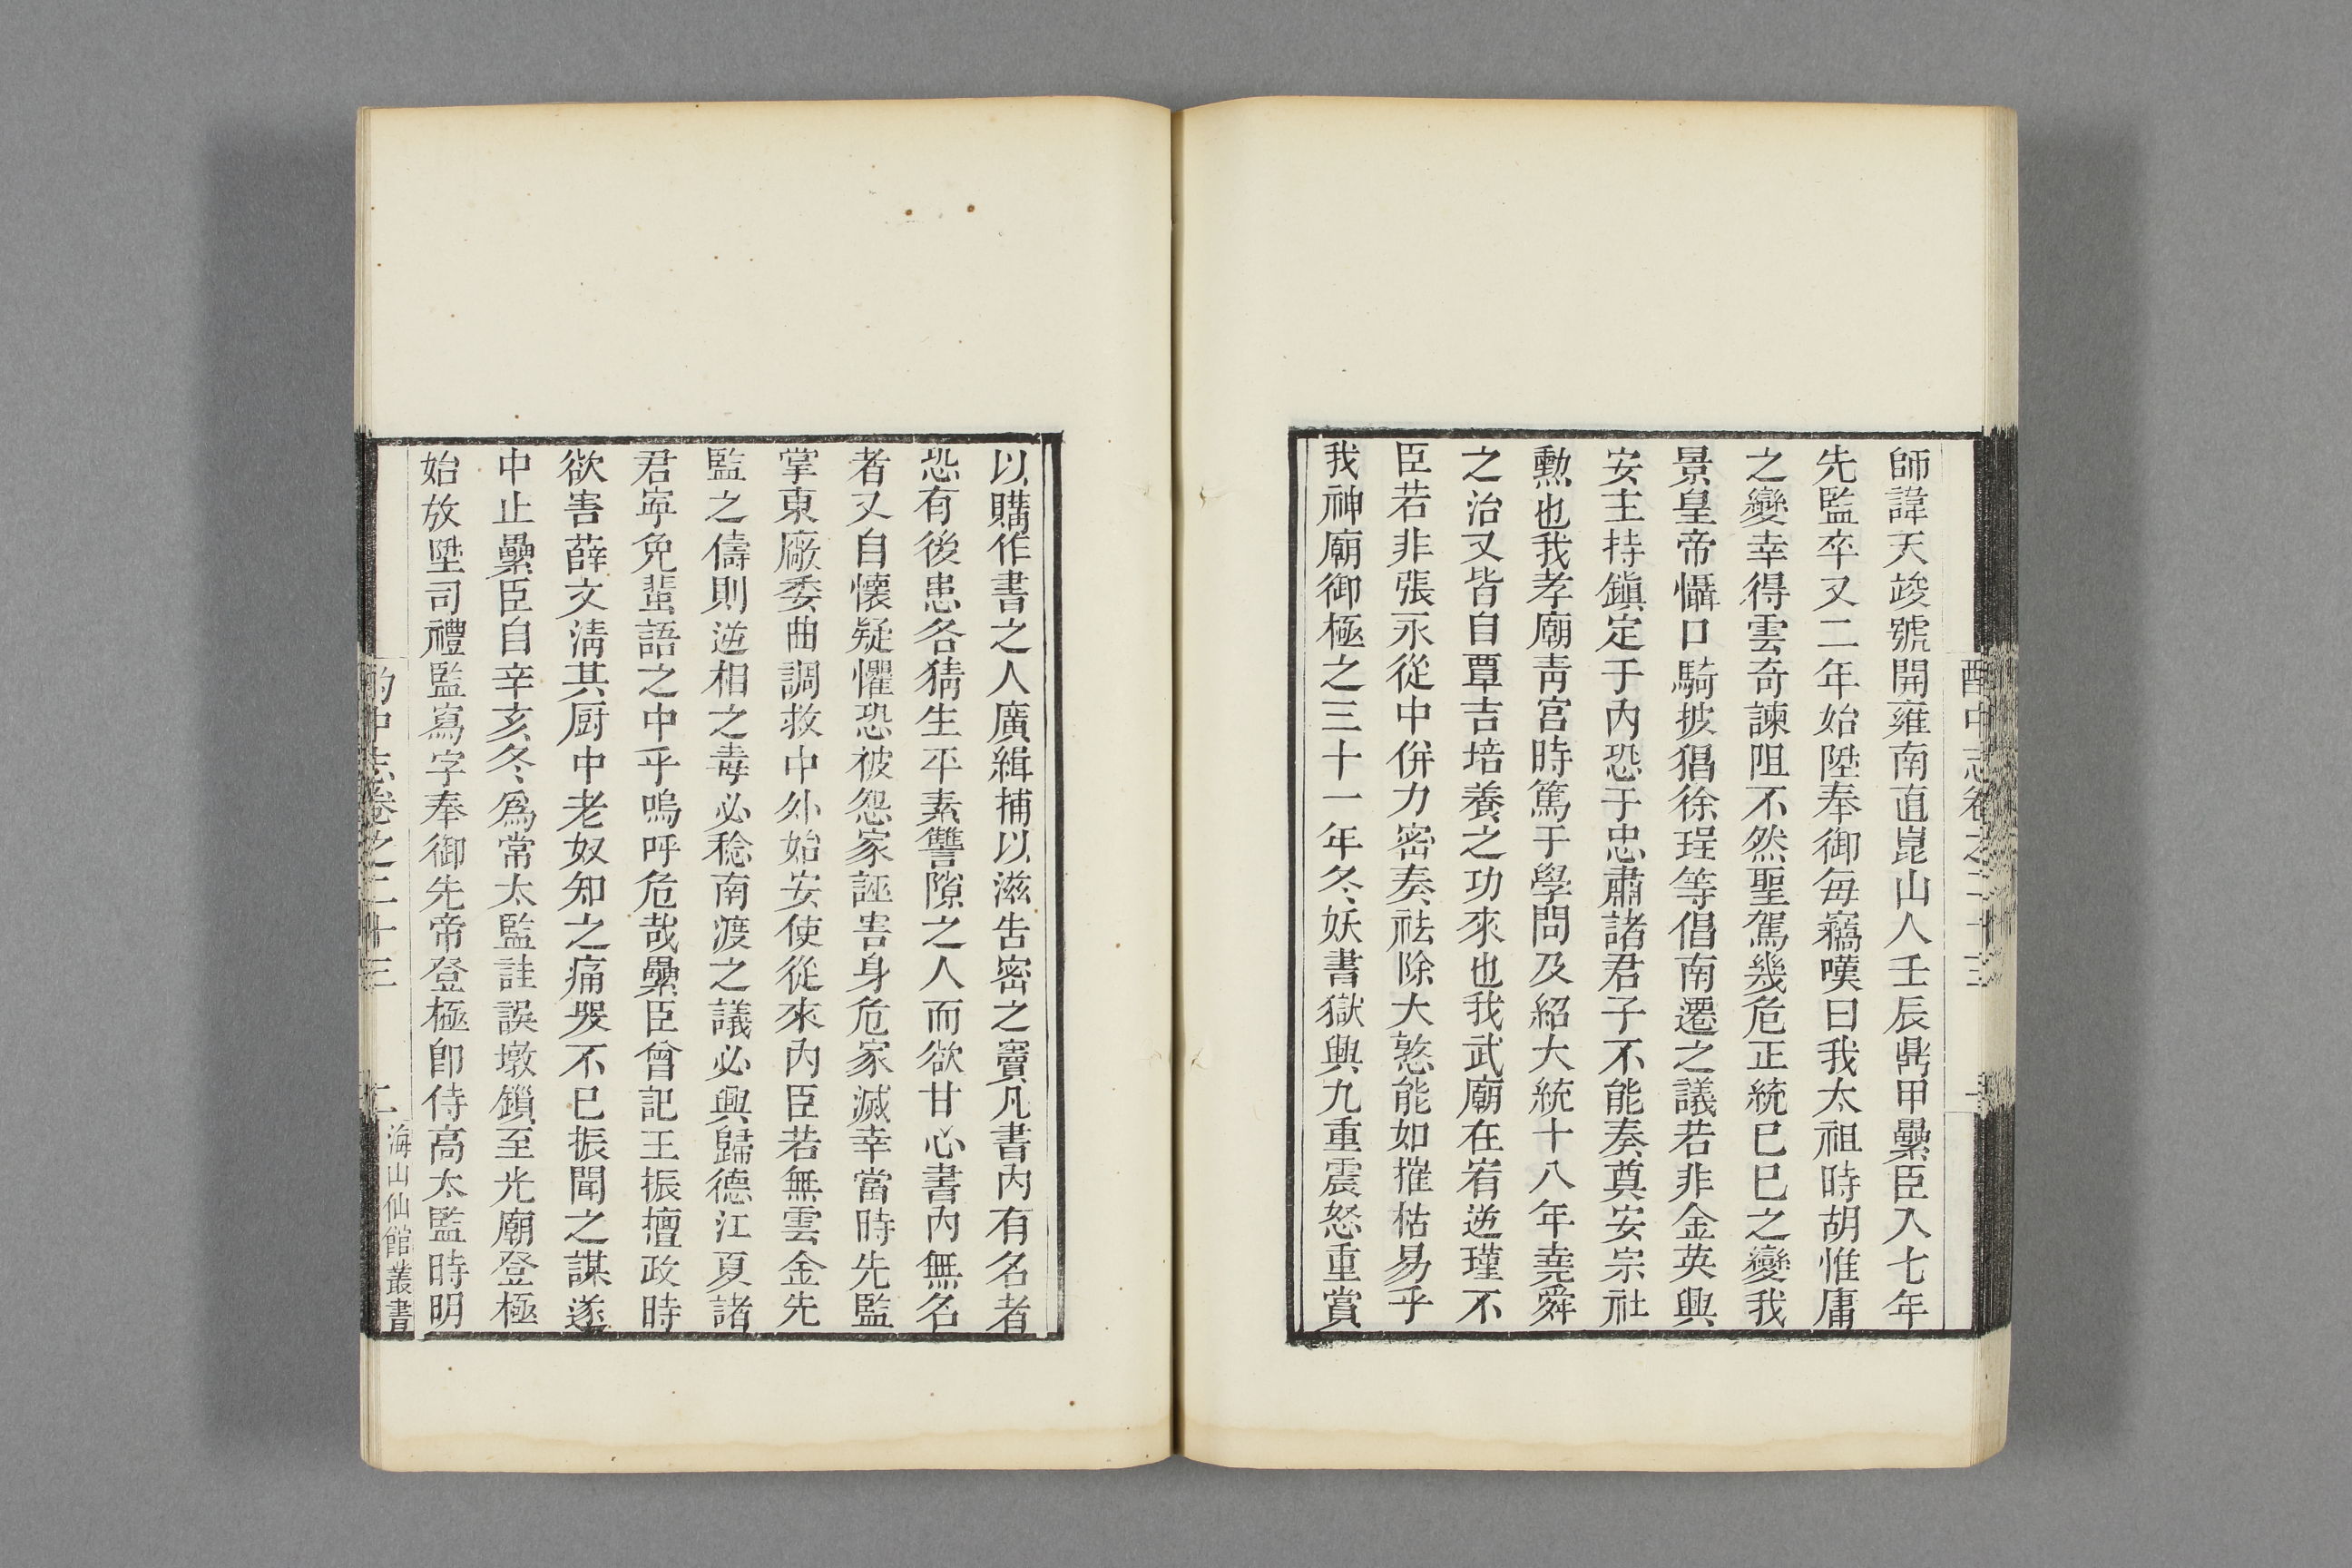 酌中志卷之二十三
師諱天竣號開雍南直崑山人壬辰鼎甲纍臣入七年
先監卒又二年始陞奉御每竊嘆曰我太祖時胡惟庸
之變幸得雲奇諫阻不然聖駕幾危正統己巳之變我
景皇帝懾口騎披猖徐珵等倡南遷之議若非金英興
安主持鎮定于內恐于忠肅諸君子不能奏奠安宗社
勲也我孝廟青宮時篤于學問及紹大統十八年堯舜
之治又皆自覃吉培養之功來也我武廟在宥逆瑾不
臣若非張永從中併力密奏祛除大憝能如摧枯易乎
我神廟御極之三十一年冬妖書獄興九重震怒重賞
以購作書之人廣緝捕以滋告密之竇凡書內有名者
恐有後患各猜生平素讐隙之人而欲甘心書內無名
者又自懷疑懼恐被怨家誣害身危家滅幸當時先監
掌東廠委曲調救中外始安使從來內臣若無雲金先
監之儔則逆相之毒必稔南渡之議必興歸德江夏諸
君寧免蜚語之中乎嗚呼危哉纍臣曾記王振擅政時
欲害薛文清其厨中老奴知之痛哭不已振聞之謀遂
中止纍臣自辛亥冬為常太監註誤墩鎖至光廟登極
始放陞司禮監寫字奉御先帝登極即侍高太監時明
酌中志卷之二十三
二
海山仙館叢書